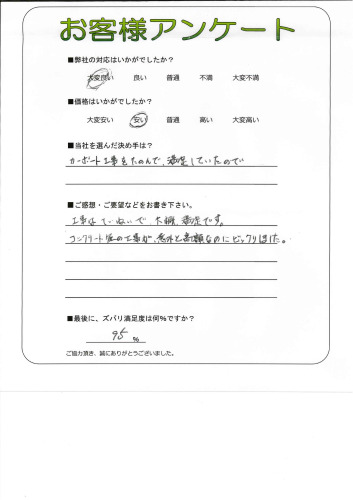 お客様アンケート
■弊社の対応はいかがでしたか？
大変良い 良い 普通 不満 大変不満
■価格はいかがでしたか？
大変安い 安い 普通 高い 大変高い
■当社を選んだ決め手は？
カーポート工事をたのんで、満足していたので
■ご感想・ご要望などをお書き下さい。
工事はていねいで、大概、満足です。
コンクリート の工事が、意外と高額なのにビックリしました。
■最後に、ズバリ満足度は何%ですか？
95 %
ご協力頂き、誠にありがとうございました。